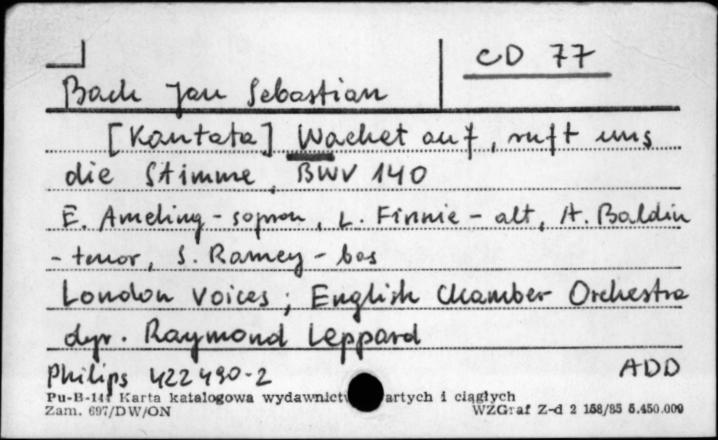 CD 77
Bach Jan Sebastian
[Kantata] Wachet auf, ruft uns
die Stimme, BWV 140
E. Ameling - sopran, L. Finnie - alt, A. Baldin
- tenor, S. Ramey - bas
London Voices; English Chamber Orchestra
dyr. Raymond Leppard
Philips 422 490-2 ADD
Karta katalogowa artych i ciągłych
Zam. 697/DW/ON WZGraf Z-d 2 158/85 5.450.000